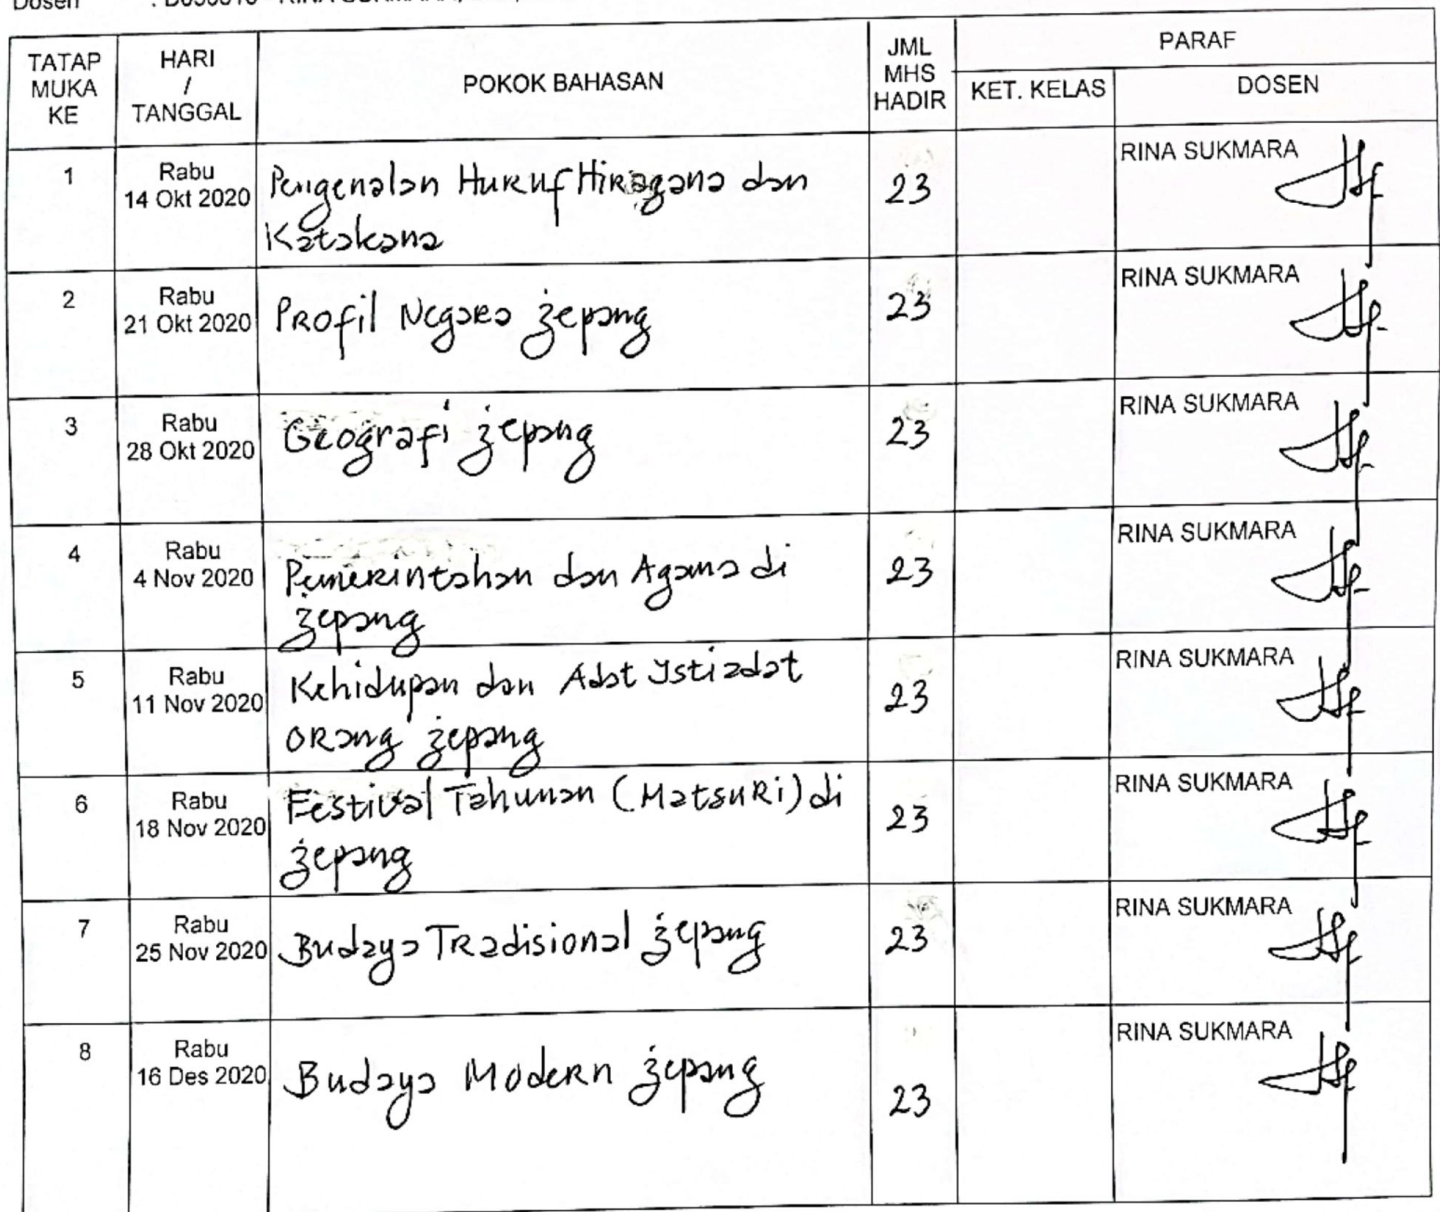 Dosen
TATAP MUKA KE
HARI / TANGGAL
POKOK BAHASAN
JML MHS HADIR
PARAF
KET. KELAS
DOSEN
1
Rabu
14 Okt 2020
Pengenalan Huruf Hiragana dan
Katakana
23
RINA SUKMARA
2
Rabu
21 Okt 2020
Profil Negara Jepang
23
RINA SUKMARA
3
Rabu
28 Okt 2020
Geografi Jepang
23
RINA SUKMARA
4
Rabu
4 Nov 2020
Pemerintahan dan Agama di
Jepang
23
RINA SUKMARA
5
Rabu
11 Nov 2020
Kehidupan dan Adat Istiadat
orang Jepang
23
RINA SUKMARA
6
Rabu
18 Nov 2020
Festival Tahunan (Matsuri) di
Jepang
23
RINA SUKMARA
7
Rabu
25 Nov 2020
Budaya Tradisional Jepang
23
RINA SUKMARA
8
Rabu
16 Des 2020
Budaya Modern Jepang
23
RINA SUKMARA